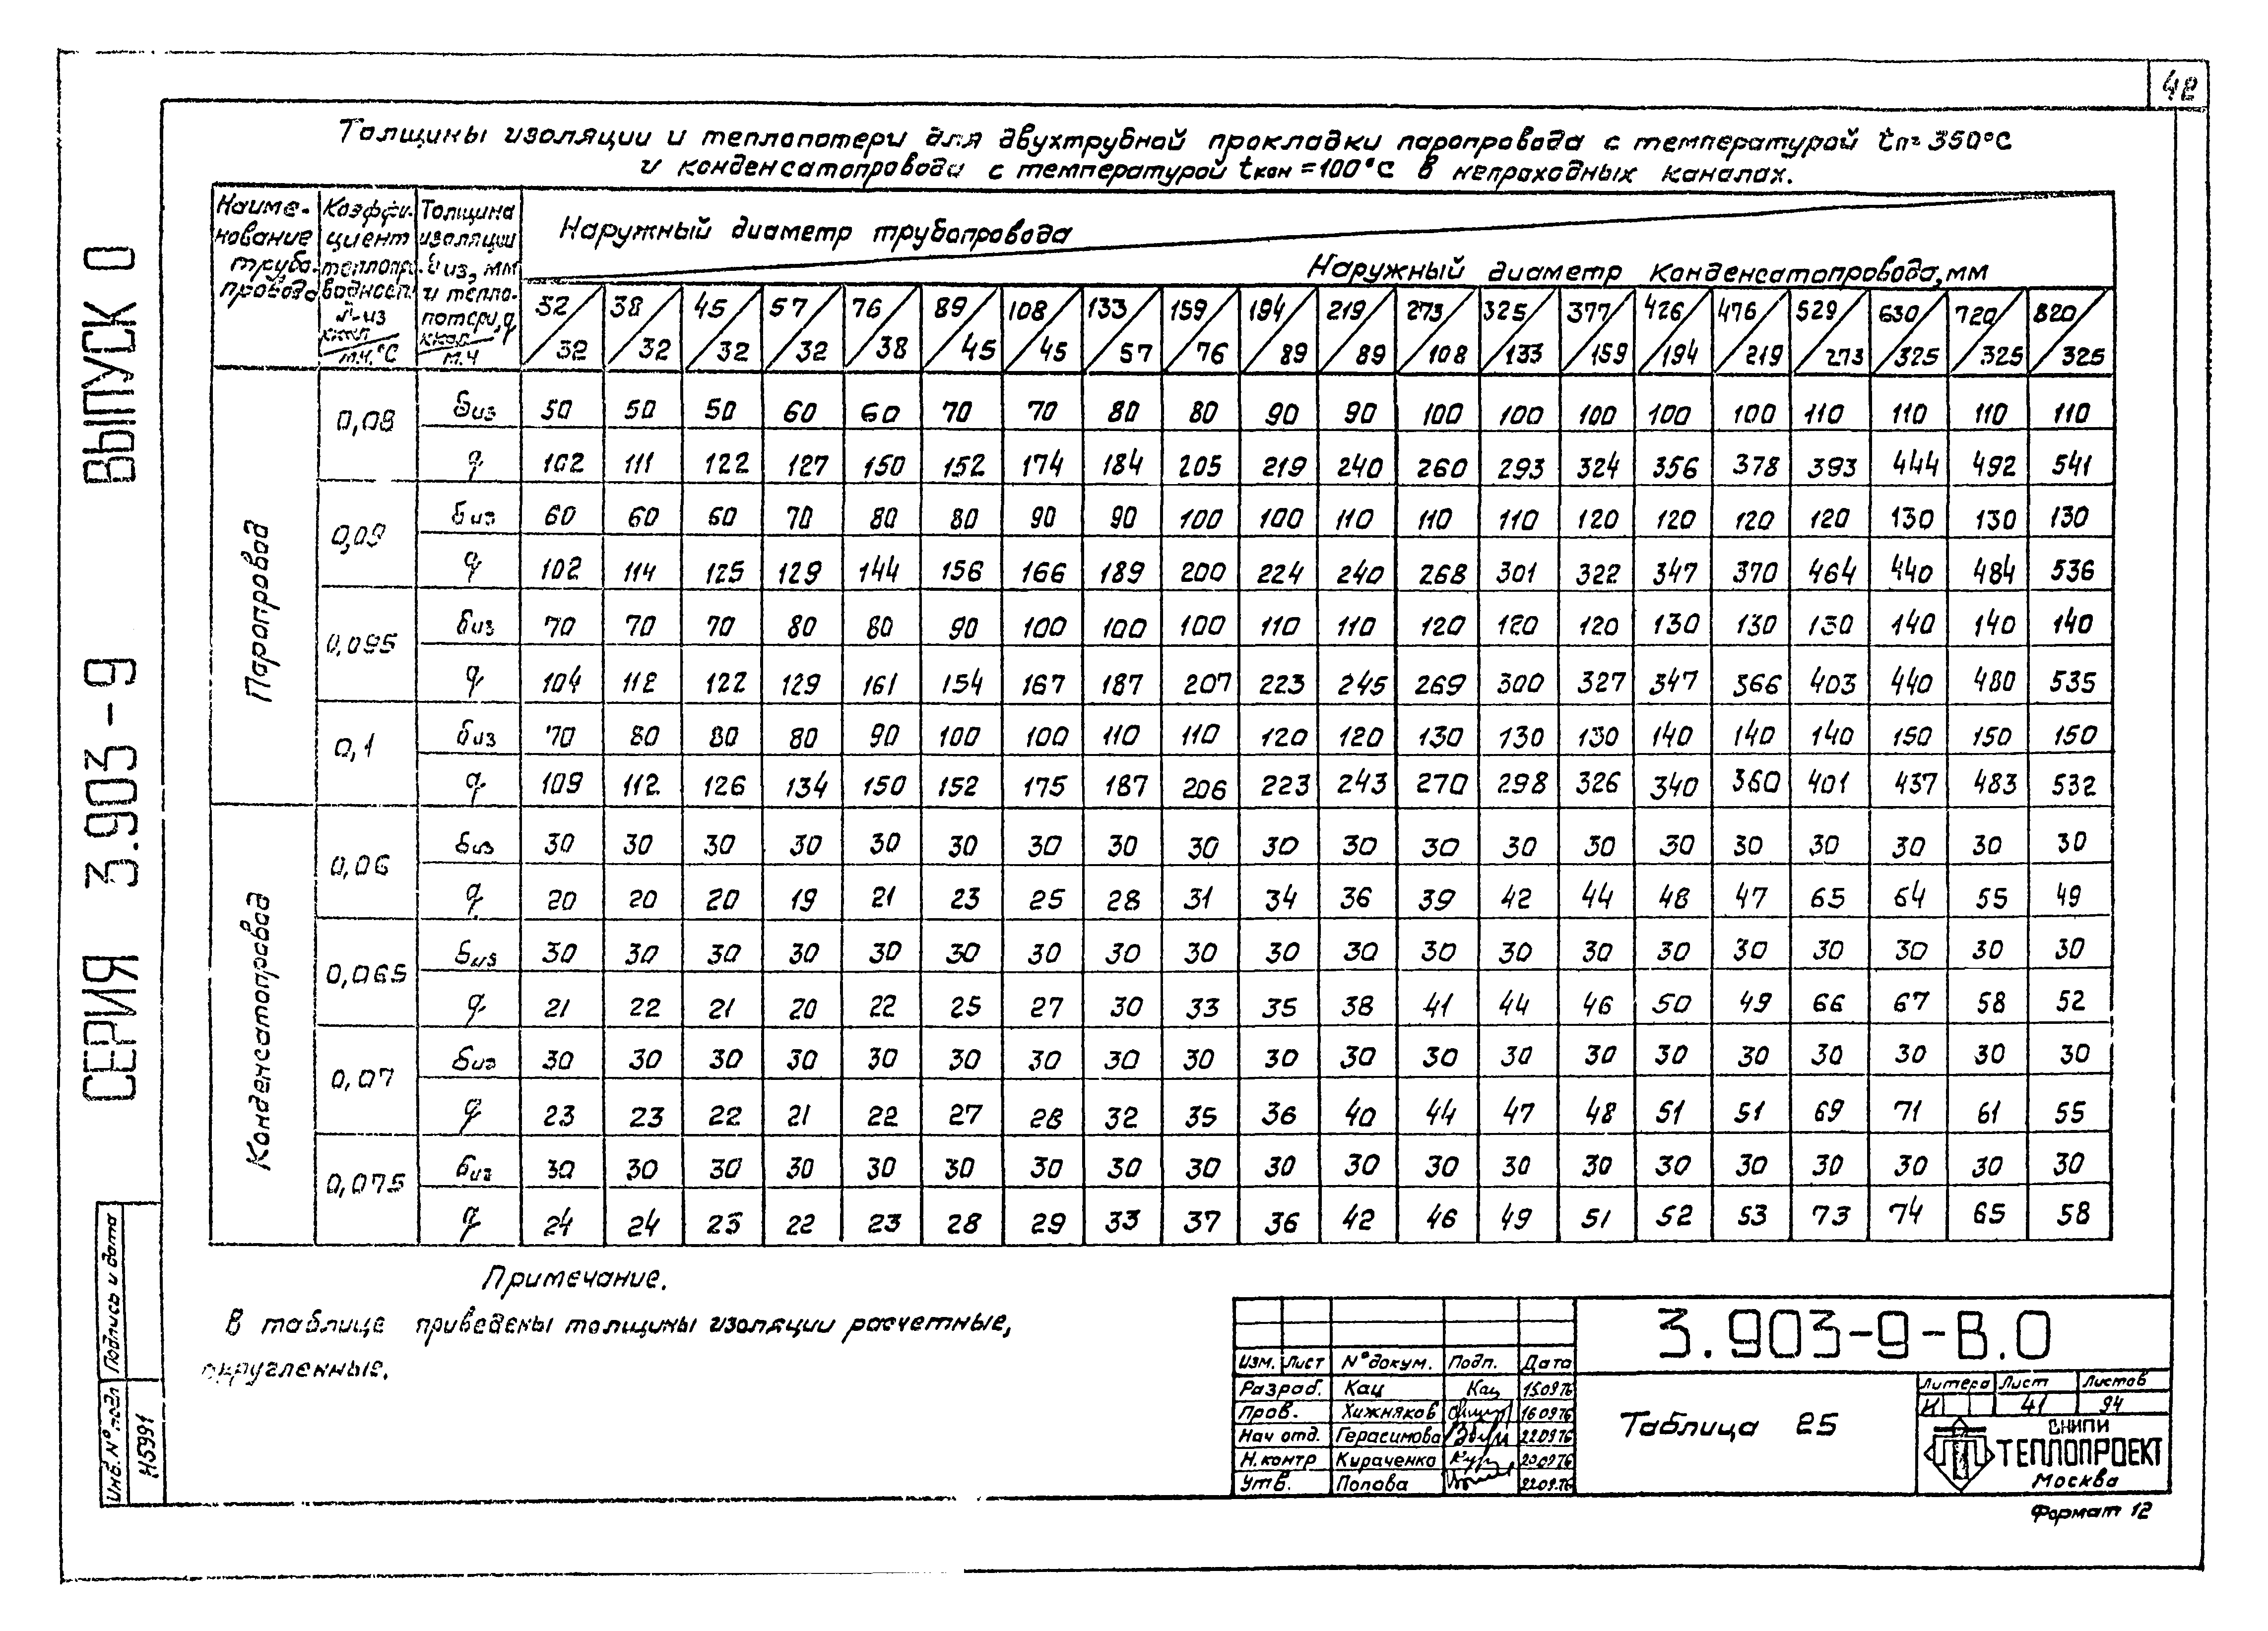 42
Толщины изоляции и теплопотери для двухтрубной прокладки паропровода с температурой tп= 350°С
и конденсатопровода с температурой tкон =100°С в непроходных каналах.
Наиме-
нование
трубо-
провода
Коэффи-
циент
теплопро-
водност.
λ из
ккал
м.ч.°С
Толщина
изоляции
δиз, мм
и тепло-
потери, q
ккал
м.ч
Наружный диаметр трубопровода
Наружный диаметр конденсатопровода, мм
32/32 38/32 45/32 57/32 76/38 89/45 108/45 133/57 159/76 194/89 219/89 273/108 325/133 377/159 426/194 476/219 529/273 630/325 720/325 820/325
Паропровод
0,08 δиз 50 50 50 60 60 70 70 80 80 90 90 100 100 100 100 100 110 110 110 110
q 102 111 122 127 150 152 174 184 205 219 240 260 293 324 356 378 393 444 492 541
0,09 δиз 60 60 60 70 80 80 90 90 100 100 110 110 110 120 120 120 120 130 130 130
q 102 114 125 129 144 156 166 189 200 224 240 268 301 322 347 370 464 440 484 536
0,095 δиз 70 70 70 80 80 90 100 100 100 110 110 120 120 120 130 130 130 140 140 140
q 104 112 122 129 161 154 167 187 207 223 245 269 300 327 347 366 403 440 480 535
0,1 δиз 70 80 80 80 90 100 100 110 110 120 120 130 130 130 140 140 140 150 150 150
q 109 112 126 134 150 152 175 187 206 223 243 270 298 326 340 360 401 437 483 532
Конденсатопровод
0,06 δиз 30 30 30 30 30 30 30 30 30 30 30 30 30 30 30 30 30 30 30 30
q 20 20 20 19 21 23 25 28 31 34 36 39 42 44 48 47 65 64 55 49
0,065 δиз 30 30 30 30 30 30 30 30 30 30 30 30 30 30 30 30 30 30 30 30
q 21 22 21 20 22 25 27 30 33 35 38 41 44 46 50 49 66 67 58 52
0,07 δиз 30 30 30 30 30 30 30 30 30 30 30 30 30 30 30 30 30 30 30 30
q 23 23 22 21 22 27 28 32 35 36 40 44 47 48 51 51 69 71 61 55
0,075 δиз 30 30 30 30 30 30 30 30 30 30 30 30 30 30 30 30 30 30 30 30
q 24 24 23 22 23 28 29 33 37 36 42 46 49 51 52 53 73 74 65 58
Примечание.
В таблице приведены толщины изоляции расчетные,
округленные.
СЕРИЯ 3.903-9 ВЫПУСК 0
Подпись и дата
Инв. № подл
Н5991
Изм. Лист № докум. Подп. Дата
Разраб. Кац Кац 15.09.76
Пров. Хижняков 16.09.76
Нач отд. Герасимова 22.09.76
Н.контр Кираченко 20.09.76
Утв. Попова 22.09.76
3.903-9-В.0
Таблица 25
Литера Лист Листов
И 41 94
ВНИПИ
ТЕПЛОПРОЕКТ
Москва
Формат 12